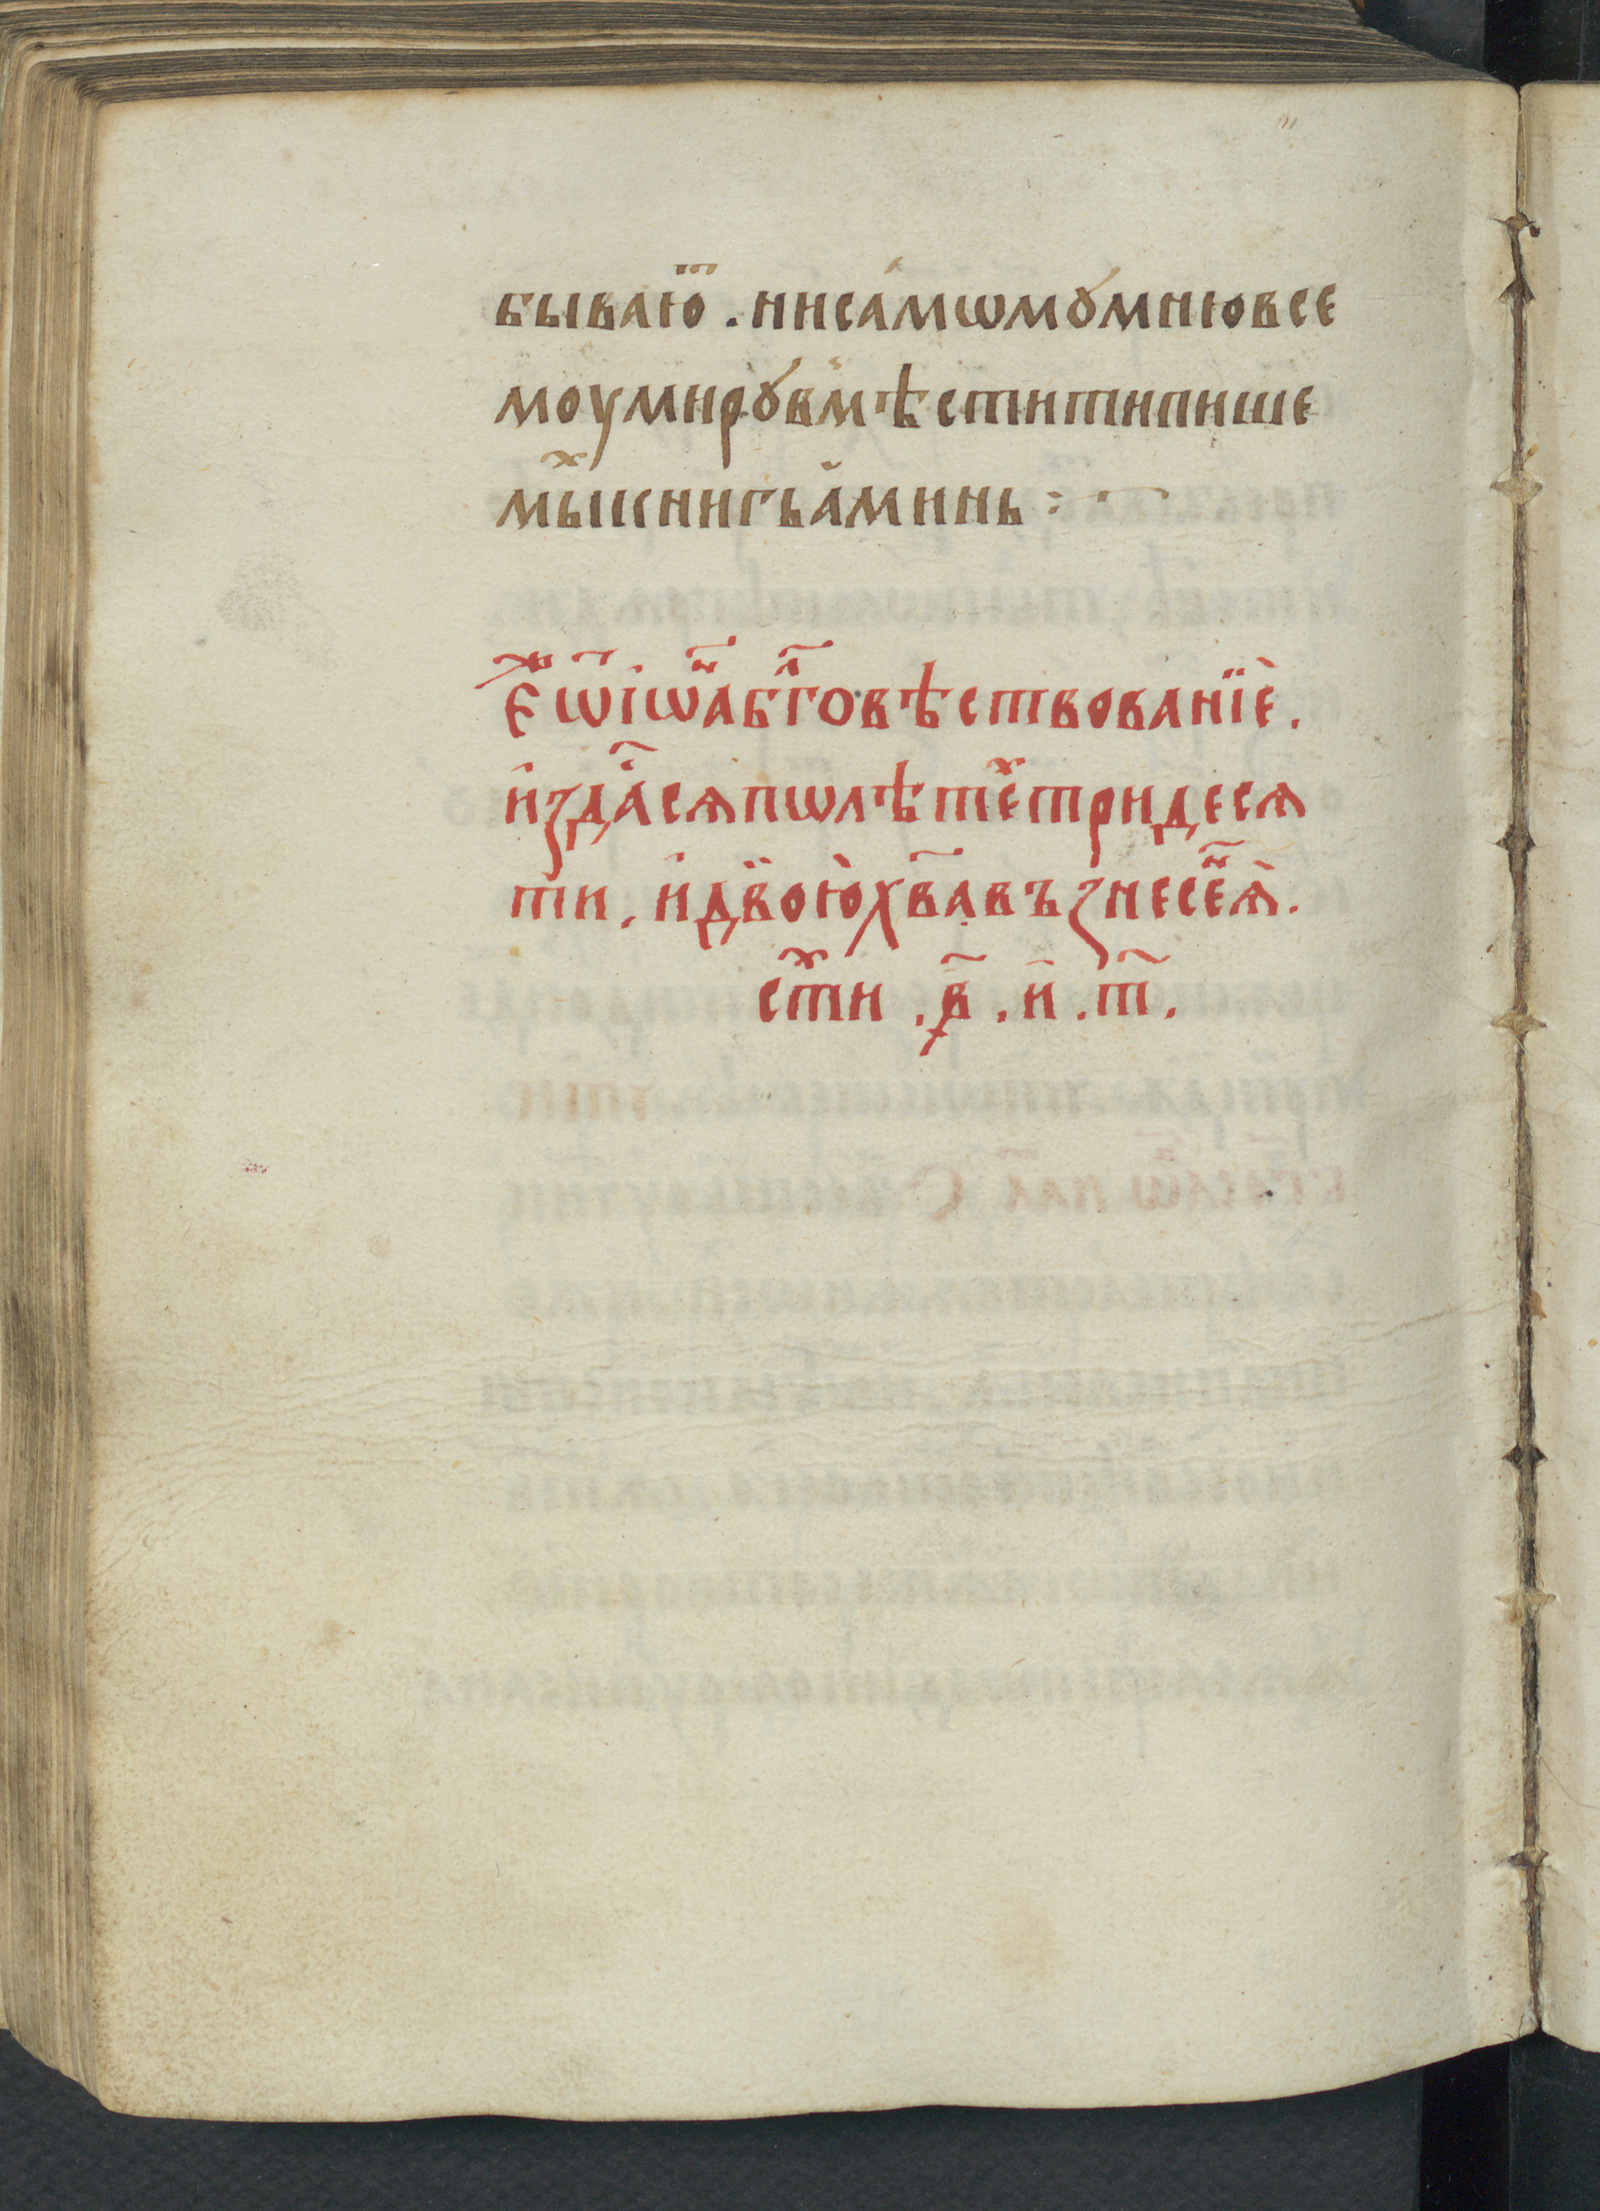 бываю҅ⷮ . ни са́мѡмꙋ мню все
моу мирꙋ в̾мѣстити пише
мы́ⷯ книгъ а҆минь :·~
Е҆ⷢ҇ѵ ѿ і҆ѡⷩ҇а бл҃говѣствованїѐ .
и҆здаⷭ҇ сѧ по лѣтеⷯ тридесѧ
ти . и҆ двою̀ хв҃а възнесеⷩ҇їа̀ .
стиⷯ . ҂в҃ . и҆ . т҃ .